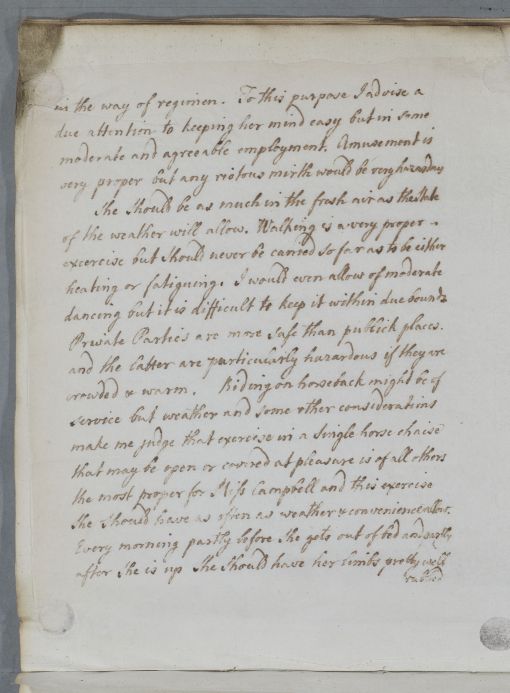 in the way of regimen. To this purpose I advise a
due attention to keeping her mind easy but in some
moderate and agreeable employment. Amusement is
very proper but any riotous mirth would be very hazardous
She should be as much in the fresh air as the state
of the weather will allow. Walking is a very proper
excercise but should never be carried so far as to be either
heating or fatiguing. I would even allow of moderate
dancing but it is difficult to keep it within due bounds
Private Parties are more safe than publick places.
and the latter are particularly hazardous if they are
crowded & warm. Riding on horseback might be of
service but weather and some other considerations
make me judge that exercise in a single horse chaise
that may be open or covered at pleasure is of all others
the most proper for Miss Campbell and this exercise
she should have as often as weather & convenience allow.
Every morning partly before she gets out of bed and partly
after she is up she should have her limbs pretty well
rubbed